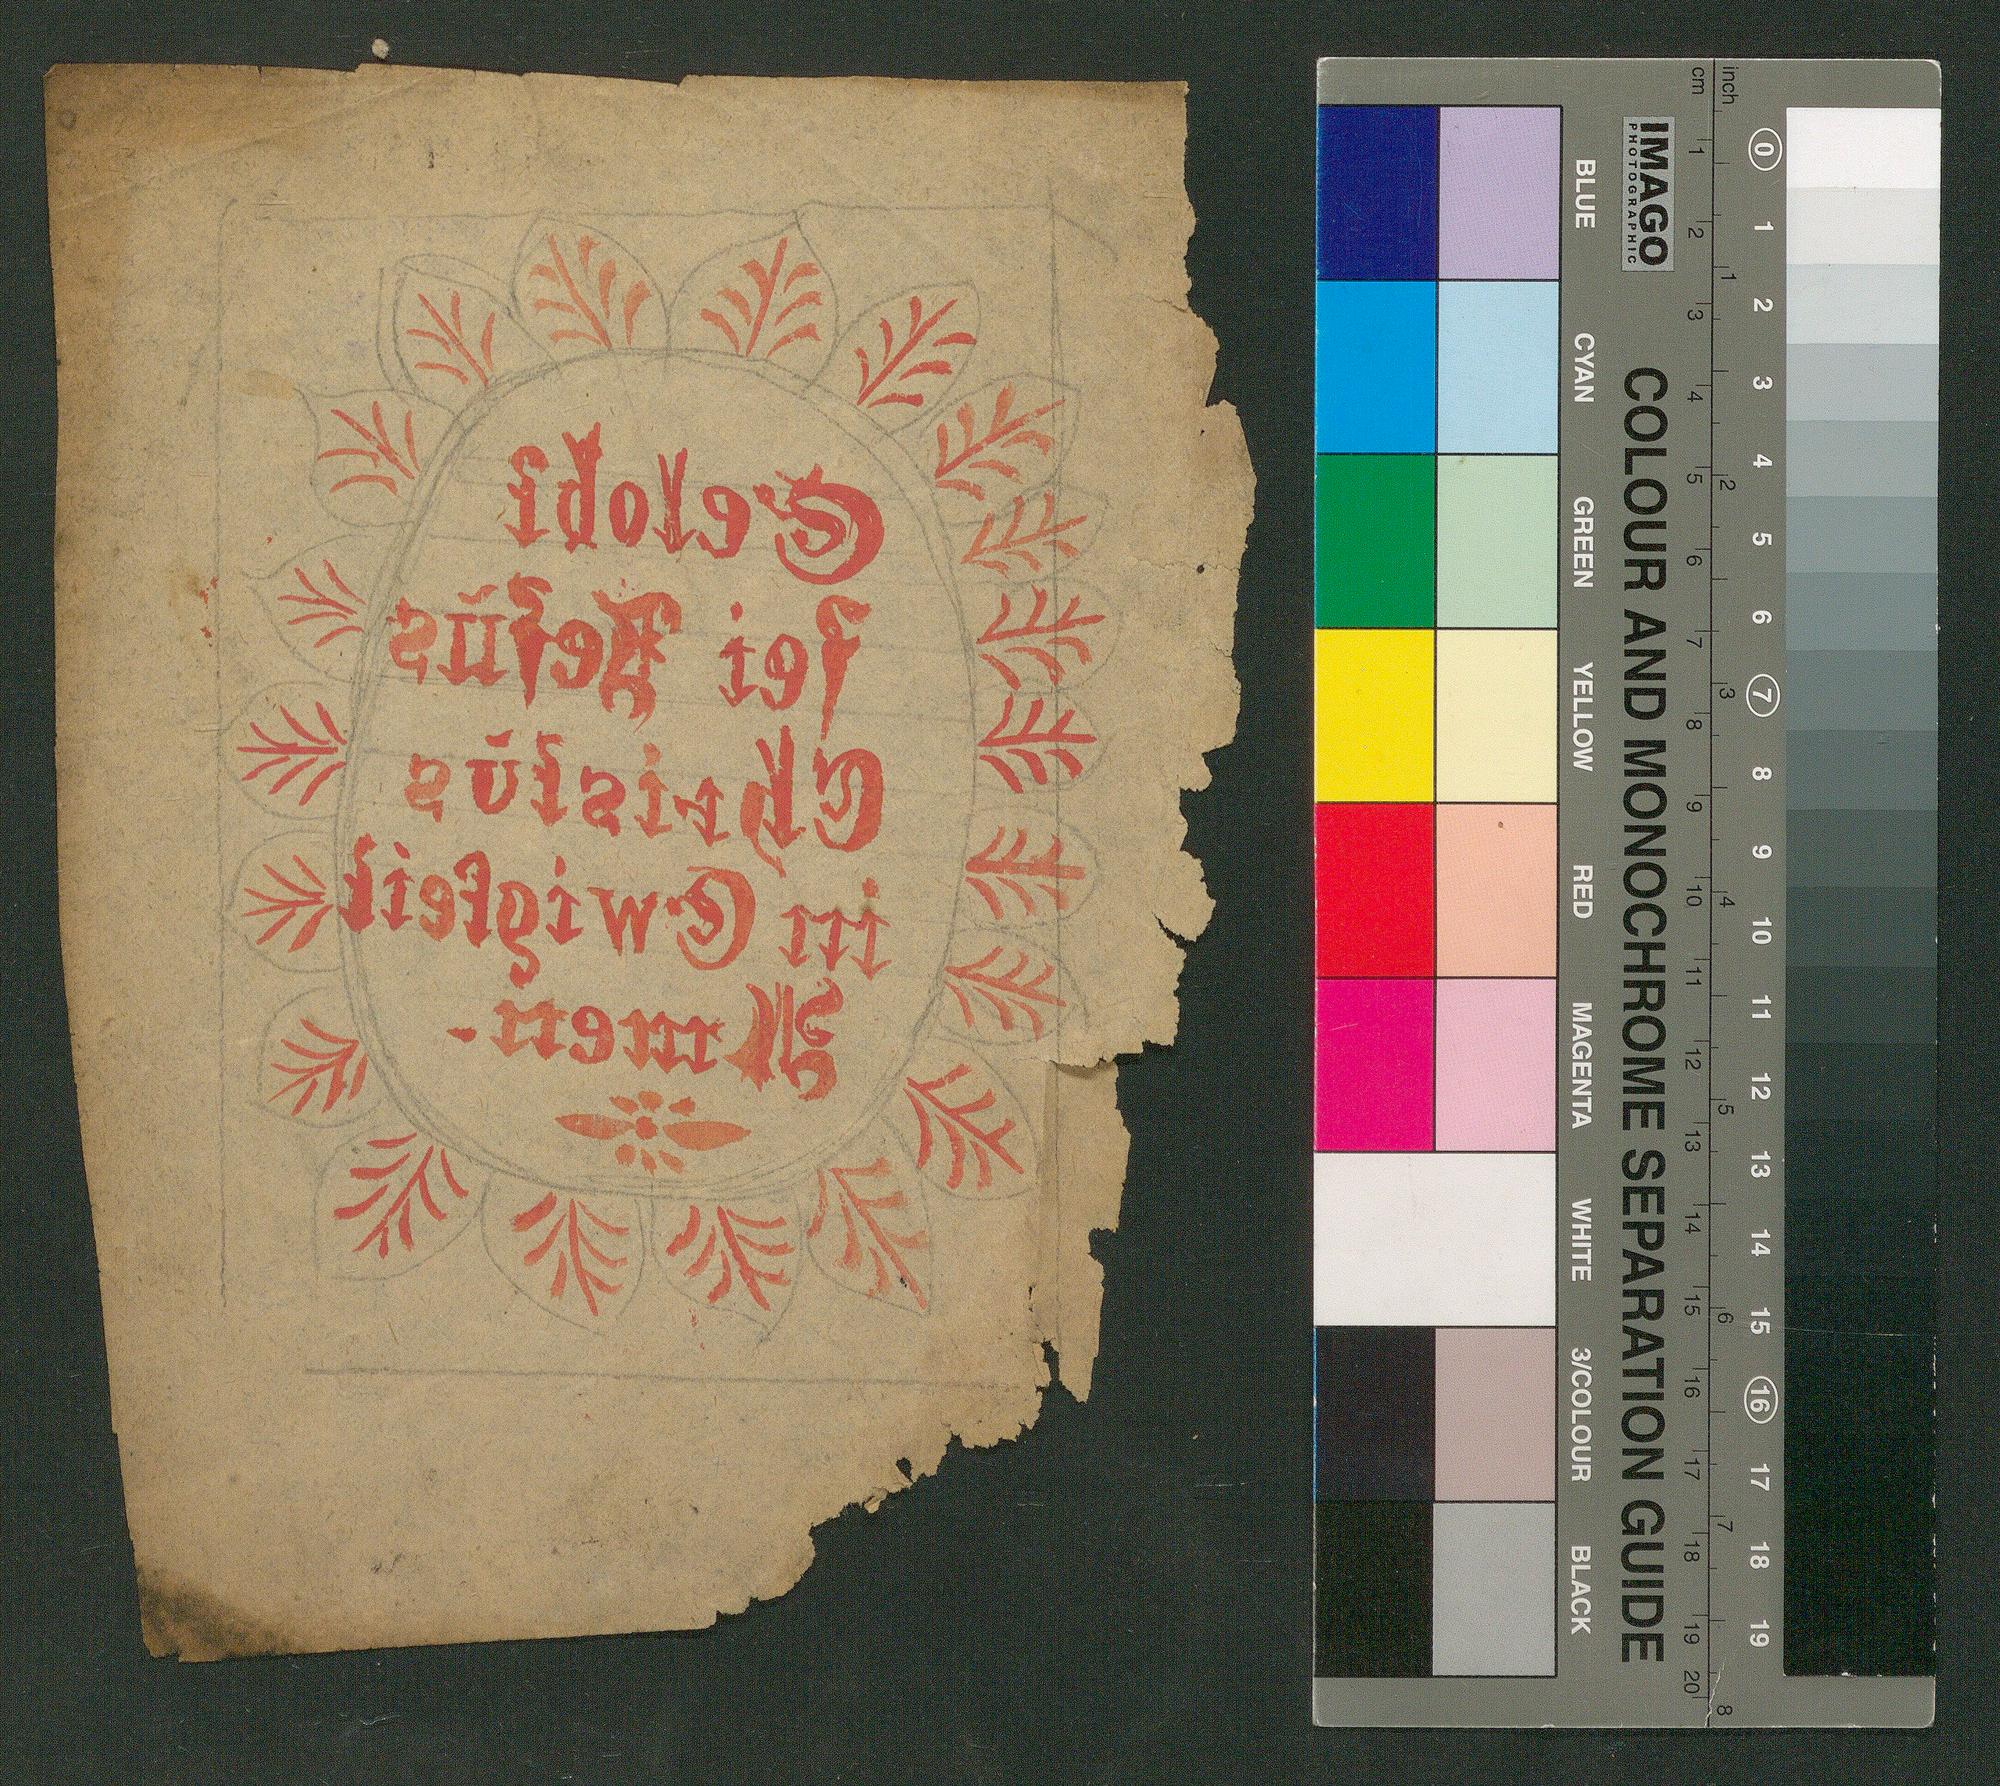 Gelobt
sei Jesus
Christus
in Ewigkeit
Amen.
inch
cm
IMAGO
PHOTOGRAPHIC
COLOUR AND MONOCHROME SEPARATION GUIDE
BLUE CYAN GREEN YELLOW RED MAGENTA WHITE 3/COLOUR BLACK
1 2 3 4 5 6 7 8 9 10 11 12 13 14 15 16 17 18 19 20
1 2 3 4 5 6 7 8
0 1 2 3 4 5 6 7 8 9 10 11 12 13 14 15 16 17 18 19